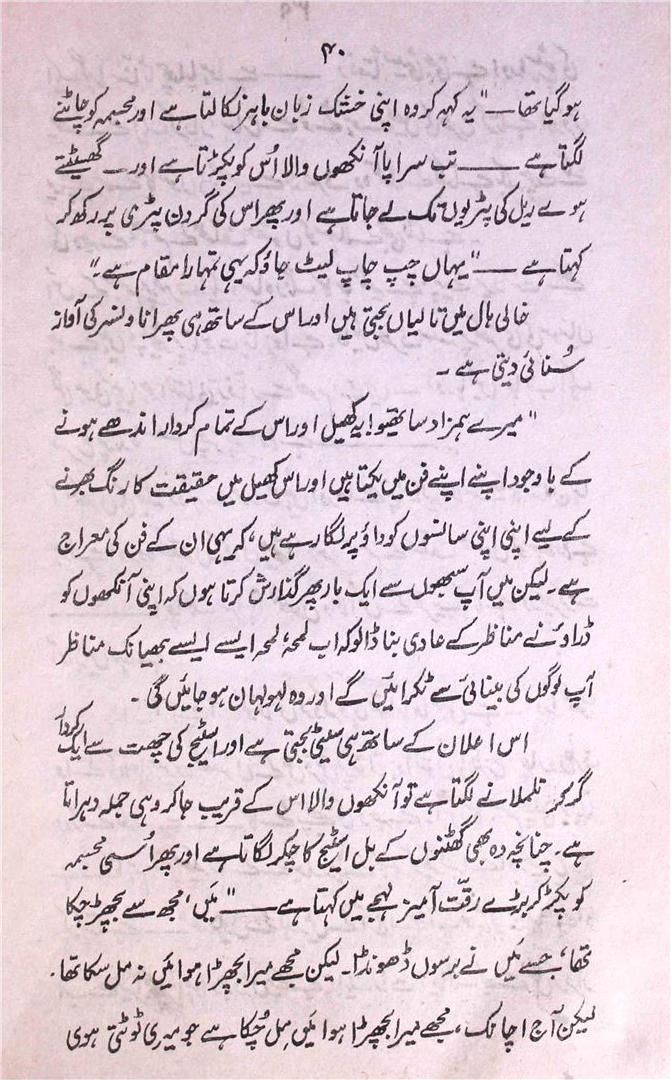 ۴۰
ہوگیا تھا ــــ" یہ کہہ کر وہ اپنی خشک زبان باہر نکالتا ہے اور مجسمہ کو چاٹنے
لگتا ہے ــــــ تب سراپا آنکھوں والا اُس کو پکڑتا ہے اور ــــ گھسیٹتے
ہوے ریل کی پٹریوں تک لے جاتا ہے اور پھر اس کی گردن پٹری پر رکھ کر
کہتا ہے ــــ "یہاں چپ چاپ لیٹ جاؤ کہ یہی تمہارا مقام ہے۔"
خالی ہال میں تالیاں بجتی ہیں اور اس کے ساتھ ہی پھر اناونسر کی آواز
سُنائی دیتی ہے ۔
"میرے ہمزاد ساتھیو! یہ کھیل اور اس کے تمام کردار اندھے ہونے
کے باوجود اپنے اپنے فن میں یکتا ہیں اور اس کھیل میں حقیقت کا رنگ بھرنے
کے لیے اپنی اپنی سانسوں کو داؤ پر لگا رہے ہیں، کہ یہی ان کے فن کی معراج
ہے۔ لیکن میں آپ سبھوں سے ایک بار پھر گذارش کرتا ہوں کہ اپنی آنکھوں کو
ڈراؤنے مناظر کے عادی بنا ڈالو کہ اب لمحہ، لمحہ ایسے ایسے بھیانک مناظر
آپ لوگوں کی بینائی سے ٹکرائیں گے اور وہ لہولہان ہو جائیں گی ۔
اس اعلان کے ساتھ ہی سیٹی بجتی ہے اور اسٹیج کی چھت سے ایک کردار
گر کر تلملانے لگتا ہے تو آنکھوں والا اس کے قریب جا کر وہی جملہ دہراتا
ہے۔ چنانچہ وہ بھی گھٹنوں کے بل اسٹیج کا چکر لگاتا ہے اور پھر اُسی مجسمہ
کو پکڑ کر بڑے رقّت آمیز لہجے میں کہتا ہے ــــ "مَیں، مجھ سے بچھڑ چکا
تھا، جسے مَیں نے برسوں ڈھونڈا۔ لیکن مجھے میرا بچھڑا ہوا مَیں نہ مل سکا تھا۔
لیکن آج اچانک، مجھے میرا بچھڑا ہوا مَیں مِل چُکا ہے جو میری ٹوٹتی ہوی